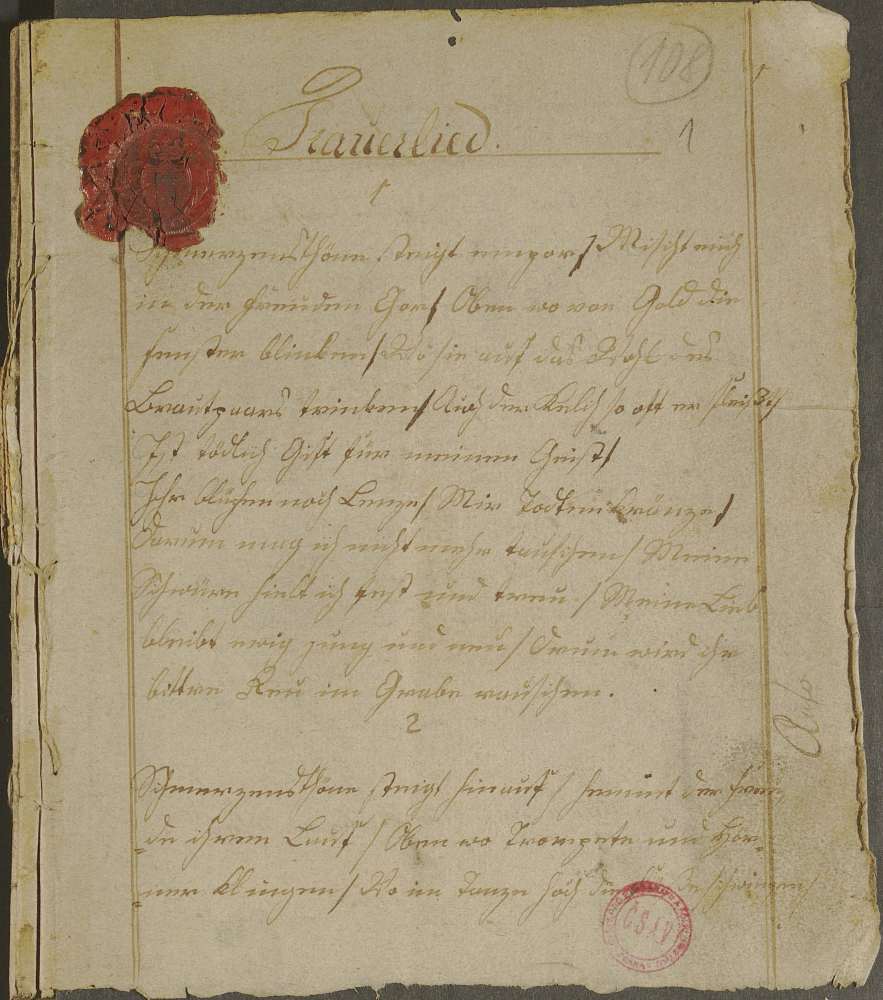 108
Trauerlied.
1
1
Schmerzensthöne steigt empor / Mischt euch
in der Freuden Cor / Oben wo von Gold die
Fenster blinken / Wo sie auf das Wohl des
Brautpaars trinken / Auch der Kelch so oft er
Ist tödlich Gift für meinen Geist /
Ihr blühen noch Lenze / Mir Todtenkränze /
Darum mag ich nicht mehr tauschen / Meine
Schwüre hielt ich fest und treu / Meine Lieb
bleibt ewig jung und neu / Drum wird ihr
bittre Reu im Grabe rauschen.
2
Schmerzensthöne steigt hinauf / hemmt der Freu
de ihren Lauf / Oben wo Trompete und Hör
ner klingen / Wo im Tanze sich die
ČSAV